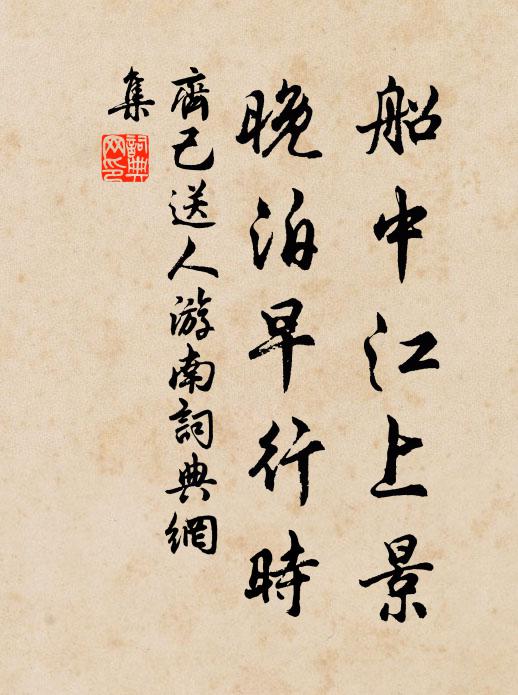 船中江上景
晚泊早行時
齊己送人游南詞典網
集
詞典網印